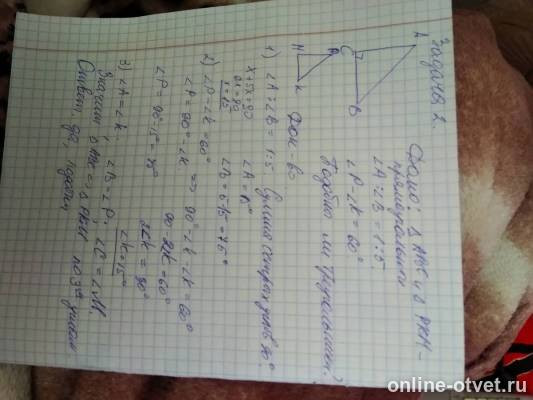 Задача 2.
A
C
B
H
P
K
Дано: Δ ABC и Δ PKH -
прямоугольные
∠A:∠B = 1:5.
∠P-∠K = 60°
Подобны ли треугольники?
Док-во
1) ∠A:∠B = 1:5 Сумма острых углов 90°.
x+5x=90
6x=90
x=15
∠A=15°
∠B=5·15=75°
2) ∠P-∠K=60°
∠P=90°-∠K => 90°-∠K-∠K=60°
90-2∠K=60°
2∠K=30°
∠K=15°
∠P=90-15°=75°
3) ∠A=∠K, ∠B=∠P, ∠C=∠H,
Значит Δ ABC Δ PKH по
Ответ: да, подобны
online-otvet.ru